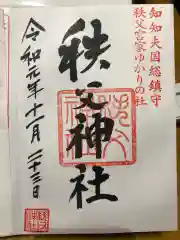 知知夫国総鎮守
秩父宮家ゆかりの社
秩父神社
令和元年十一月二十三日